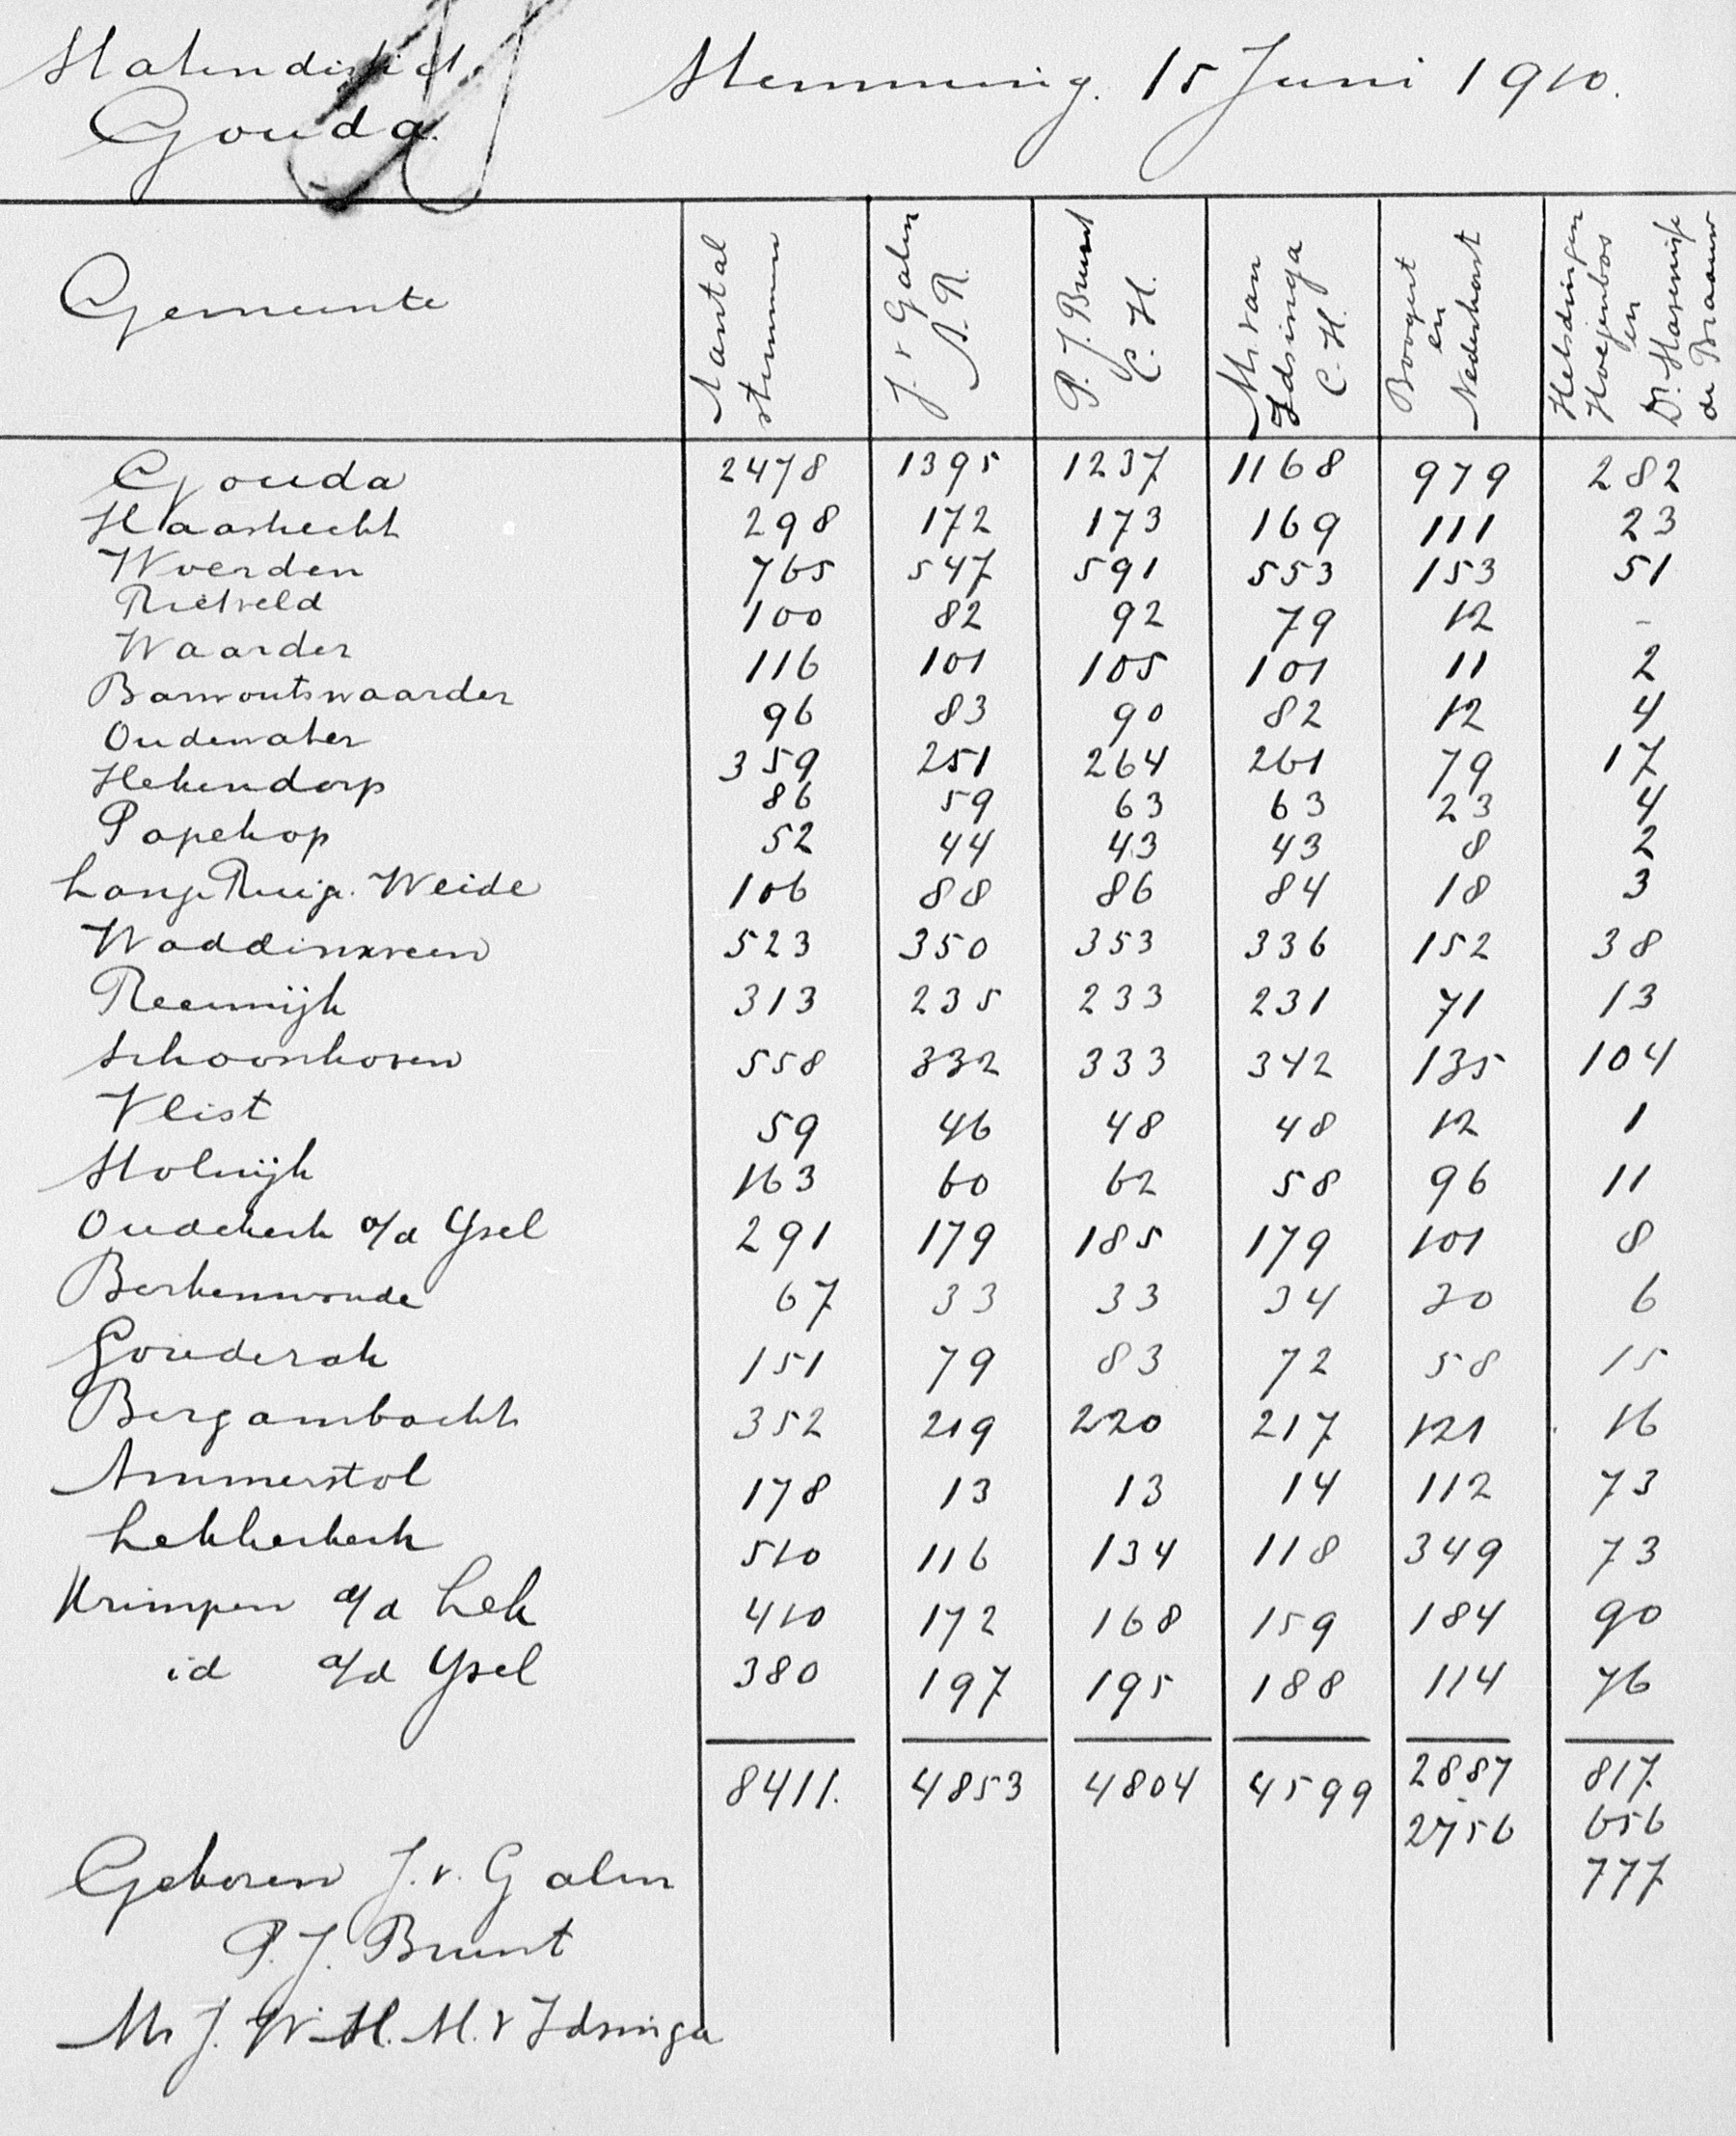 Statendistrict
Gouda.
Stemming. 15 Juni 1910.
Gemeente
Aantal stemmen
J. v Galen A.R.
P. J. Brunt C.H.
Mr. van Idsinga C.H.
Boogert en Nederhorst
Helsdingen Hoejenbos en Dr. de Braauw
Gouda 2478 1395 1237 1168 979 282
Haastrecht 298 172 173 169 111 23
Woerden 765 547 591 553 153 51
Rietveld 100 82 92 79 12 -
Waarder 116 101 105 101 11 2
Barwoutswaarder 96 83 90 82 12 4
Oudewater 359 251 264 261 79 17
Hekendorp 86 59 63 63 23 4
Papekop 52 44 43 43 8 2
Lange Ruige Weide 106 88 86 84 18 3
Waddinxveen 523 350 353 336 152 38
Reeuwijk 313 235 233 231 71 13
Schoonhoven 558 332 333 342 135 104
Vlist 59 46 48 48 12 1
Stolwijk 163 60 62 58 96 11
Oudekerk a/d Ysel 291 179 185 179 101 8
Berkenwoude 67 33 33 34 30 6
Gouderak 151 79 83 72 58 15
Bergambacht 352 219 220 217 121 16
Ammerstol 178 13 13 14 112 73
Lekkerkerk 510 116 134 118 349 73
Krimpen a/d Lek 410 172 168 159 184 90
id a/d Ysel 380 197 195 188 114 76
8411. 4853 4804 4599 2887 817
2756 656
777
Gekozen J. v. Galen
P. J. Brunt
Mr J. W. H. M. v Idsinga